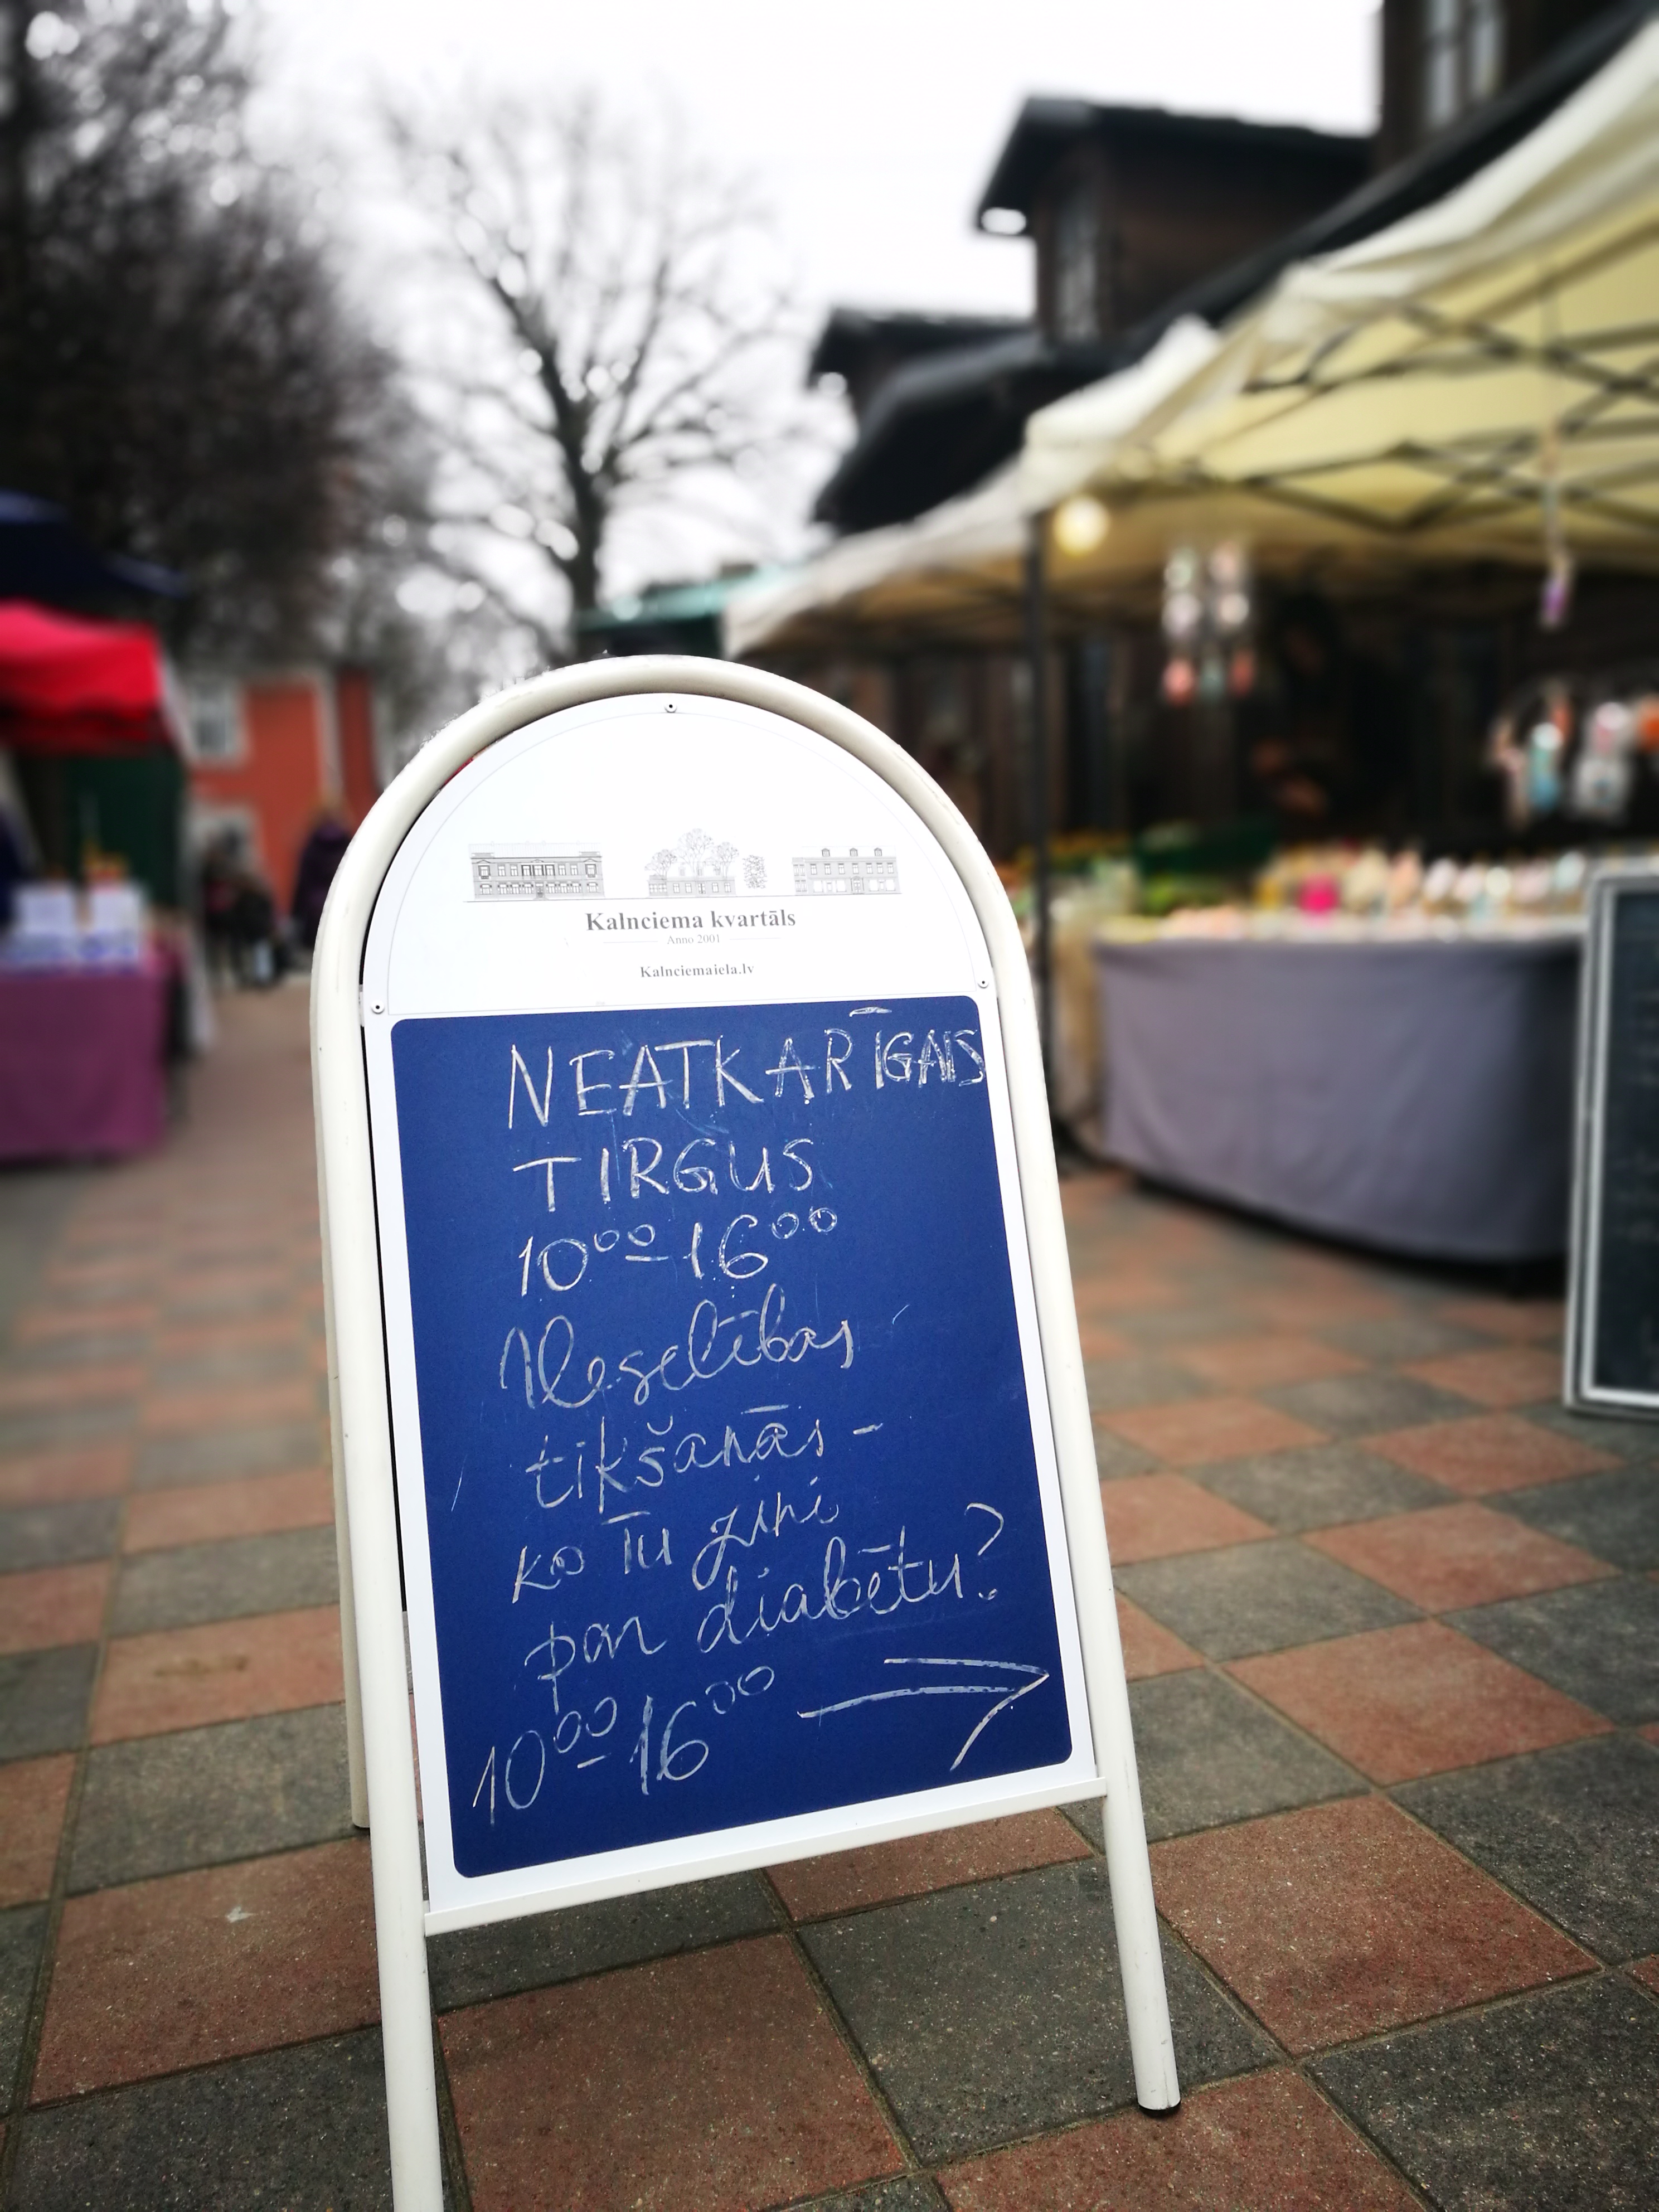 Kalnciema kvartāls
Anno 2001
Kalnciemaiela.lv
NEATKARĪGAIS
TIRGUS
10⁰⁰-16⁰⁰
Veselības
tikšanās -
ko Tu zini
par diabētu?
10⁰⁰-16⁰⁰ →